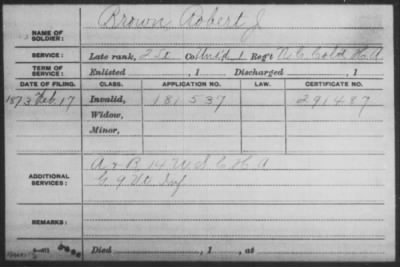 Brown Robert J
NAME OF SOLDIER:
SERVICE: Late rank, 2 Lt Co Unasd 1 Reg't N.C. Cold H.A.
TERM OF SERVICE: Enlisted , 1 Discharged , 1
DATE OF FILING. CLASS. APPLICATION NO. LAW. CERTIFICATE NO.
1873 Feb 17 Invalid, 181537 291487
Widow,
Minor,
ADDITIONAL SERVICES:
A & B 14 U S C H A
G. 9 Vt Inf
REMARKS:
Died , 1 , at